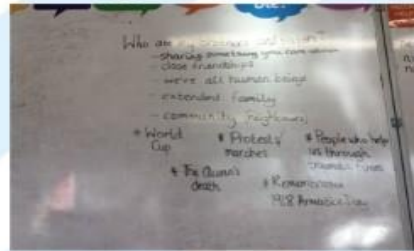 Who are my brothers and sisters?
- sharing something you care about
- close friendships
- we're all human beings
- extended family
- community, neighbours,
* World Cup
* Protests/ marches
* People who help us through
* The Queen's death
* Remembrance 1918 Armistice Day